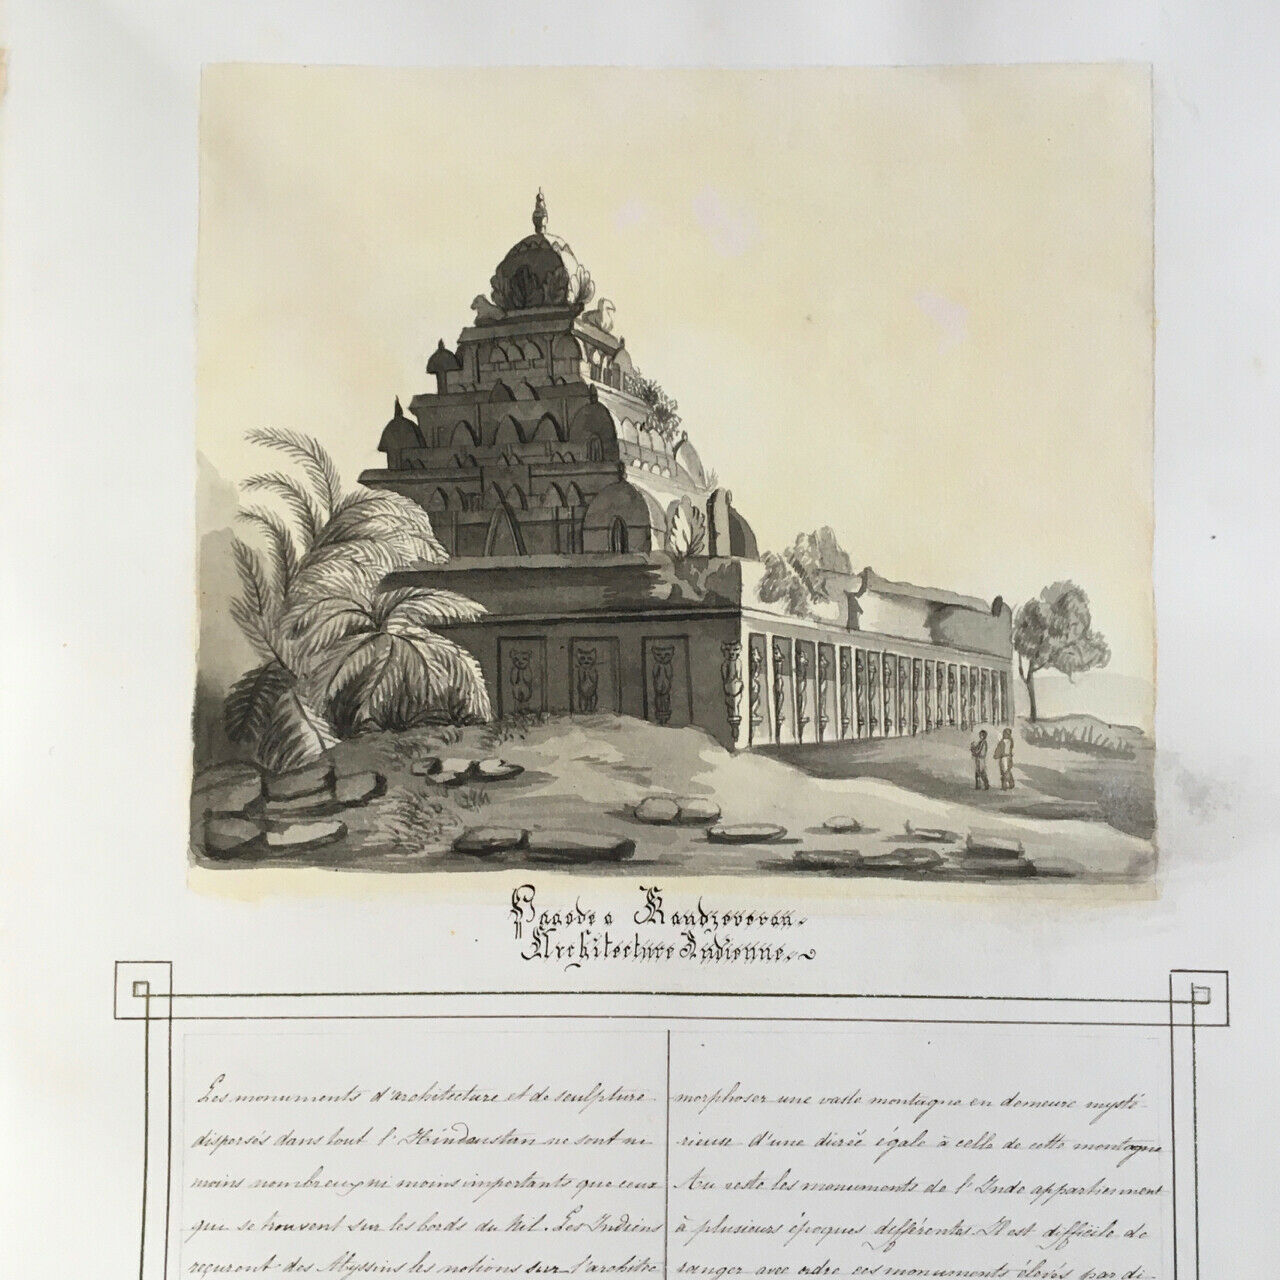 Pagode a Kandzeveran.
Architecture Indienne.
Les monuments d'architecture et de sculpture
dispersés dans tout l'Hindoustan ne sont ni
moins nombreux ni moins importants que ceux
qui se trouvent sur les bords du Nil. Les Indiens
reçurent des Abyssins les notions sur l'architec
morphoser une vaste montagne en demeure mysté-
rieuse d'une durée égale à celle de cette montagne
Au reste les monuments de l'Inde appartiennent
à plusieurs époques différentes. Il est difficile de
ranger avec ordre ces monuments élevés par di-